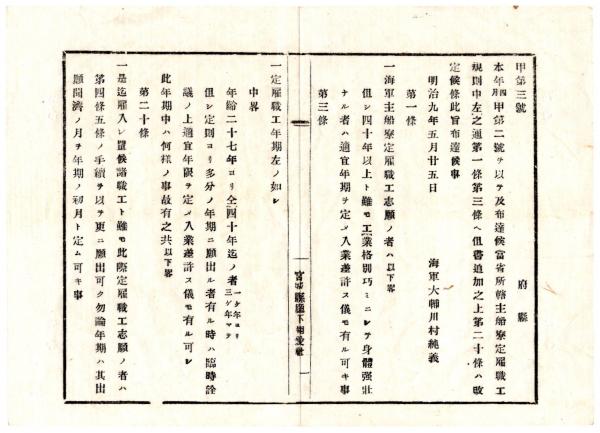 甲第三號
府縣
本年四月甲第二號ヲ以テ及布達候當省所轄主船寮定雇職工
規則中左之通第一條第三條ヘ但書追加之上第二十條ハ改
定候條此旨布達候事
明治九年五月廿五日
海軍大輔川村純義
第一條
一海軍主船寮定雇職工志願ノ者ハ以下畧
但シ四十年以上ト雖モ工業格別巧ミニシテ身體强壯
ナル者ハ適宜年期ヲ定メ入業差許ス儀モ有ル可キ事
第三條
宮城縣廳下相愛社
一定雇職工年期左ノ如シ
中畧
年齡二十七年ヨリ仝四十年迄ノ者一ケ年ヨリ三ケ年マテ
但シ定則ヨリ多分ノ年期ニ願出ル者有ル時ハ臨時詮
議ノ上適宜年限ヲ定メ入業差許ス儀モ有ル可シ
此年期中ハ何樣ノ事故有之共以下畧
第二十條
一是迄雇入レ置候諸職工ト雖モ此際定雇職工志願ノ者ハ
第四條五條ノ手續ヲ以テ更ニ願出可ク勿論年期ハ其出
願聞濟ノ月ヲ年期ノ初月ト定ム可キ事